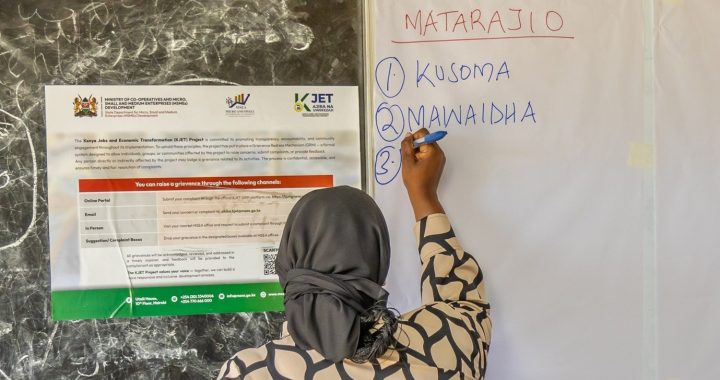 MATARAJIO
① KUSOMA
② MAWAIDHA
③
MINISTRY OF CO-OPERATIVES AND MICRO,
SMALL AND MEDIUM ENTERPRISES (MSMEs)
DEVELOPMENT
State Department for Micro, Small and Medium
Enterprises (MSMEs) Development
KJET
AJIRA NA
The Kenya Jobs and Economic Transformation (KJET) Project is committed to promoting transparency, accountability, and community
engagement throughout its implementation. To uphold these principles, the project has put in place a Grievance Redress Mechanism (GRM) – a formal
system designed to allow individuals, groups, or communities affected by the project to raise concerns, submit complaints, or provide feedback.
Any person directly or indirectly affected by the project may lodge a grievance related to its activities. The process is confidential, accessible, and
ensures timely and fair resolution of complaints.
You can raise a grievance through the following channels:
Online Portal
Submit your complaint through the official
Email
Send your concern or complaint to
In Person
Visit your nearest MSEA office and request to submit a complaint
Suggestion/ Complaint Boxes
Drop your grievance in the designated boxes available at MSEA offices
All grievances will be acknowledged, reviewed, and addressed in
a timely manner, and feedback will be provided to the
complainant as appropriate.
The KJET Project values your voice – together, we can build a
more responsive and inclusive development process.
SCAN
Uttalii House,
10th Floor, Nairobi